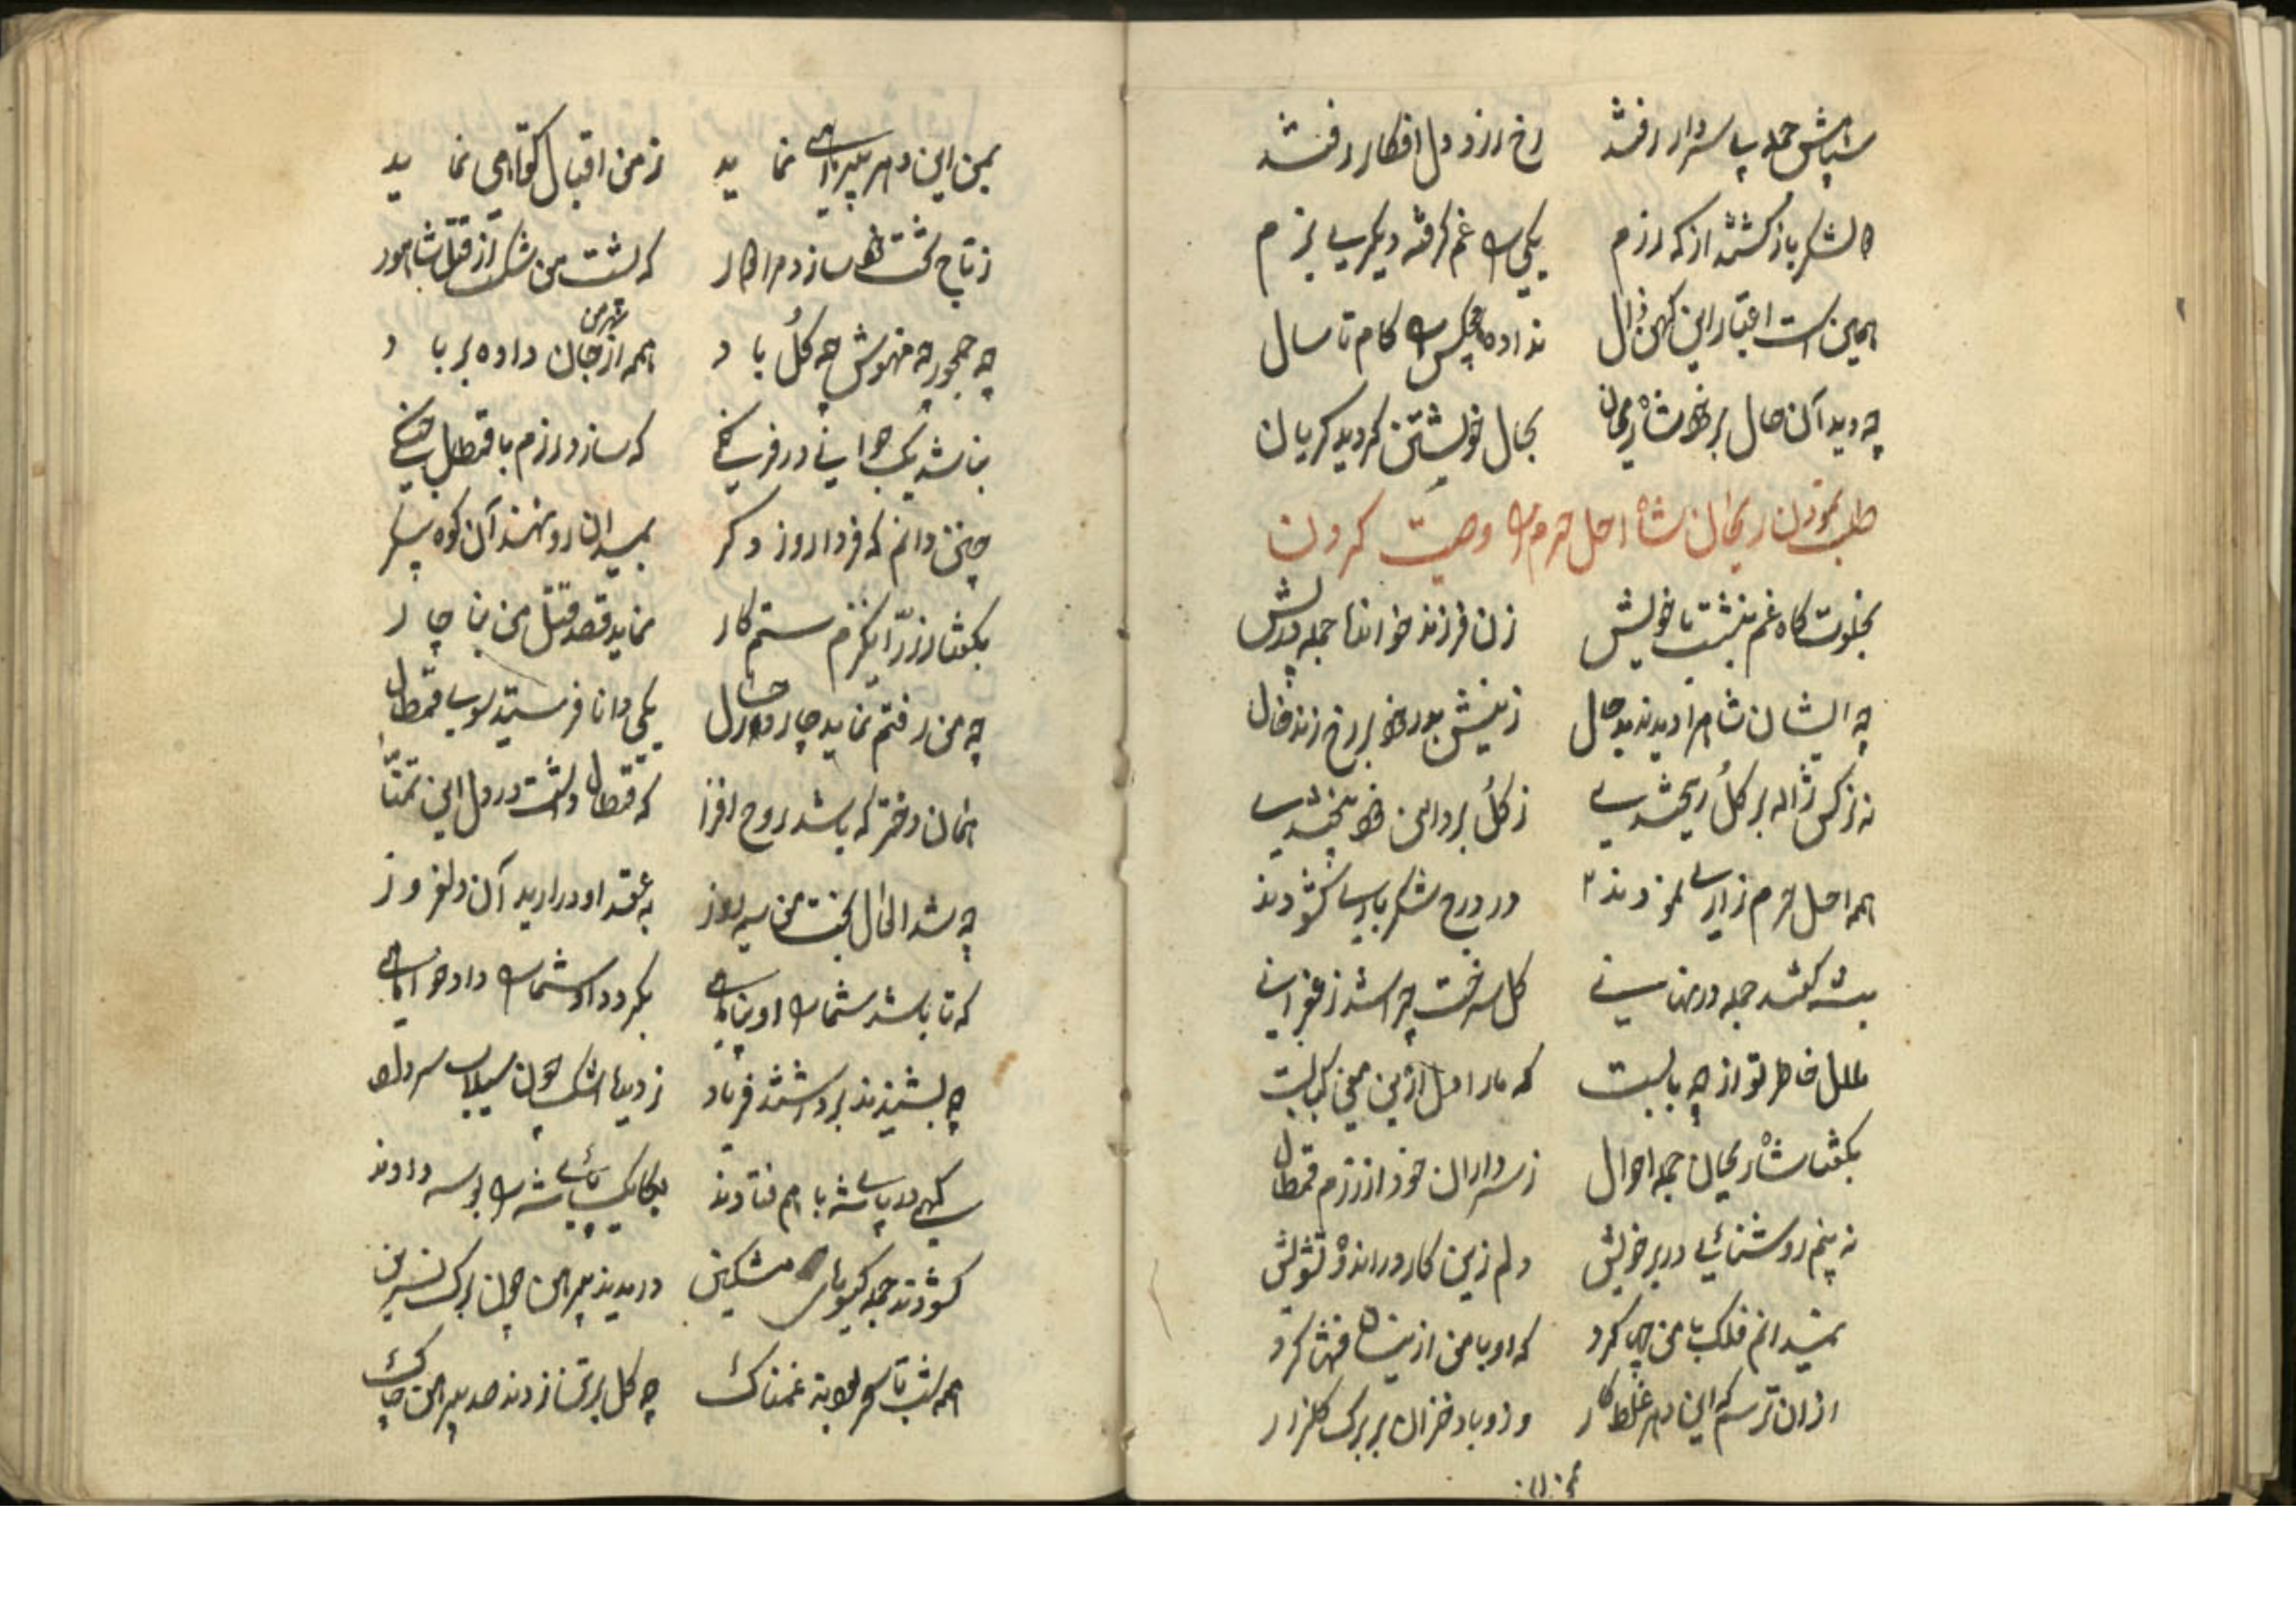 سپاهش جمله بی سردار رفتند رخ زرد و دل افکار رفتند
دو لشکر باز گشتند از که رزم یکی را غم گرفته دیگری بزم
همین است اعتبار این کهن زال نداده هیچکس را کام تا سال
چه دید آن حال بر خود شاه ریحان بحال خویشتن گردید گریان
طلب نمودن ریحان شاه اهل حرم را وصیت کردن
بخلوت کاه غم بنشست با خویش زن فرزند خواندا جمله در پیش
چه ایشان شاه را دیدند بد حال زنیش بر رخ زند خال
نه نرکس ژاله بر کل ریختندی ز کل بر دامن خود بیختندی
همه اهل حرم زاری نمودند در درج شکر باری کشودند
بشه گفتند جمله در نهانی کل سرخت چرا شد زعفرانی
ملال خاطر تو از چه بابست که مارا دل ازین معنی کبابست
بگفتا شاه ریحان جمله احوال ز سرداران خود از رزم قمطال
نه بینم روشنائی در بر خویش دلم زین کار در اندوه تشویش
نمیدانم فلک با من چها کرد که او با من ازینسان فتنها کرد
ازان ترسم که این دهر غلط کار وزد باد خزان بر برک کلزار
بمن این دهر بیراهی نماید ز من اقبال کوتاهی نماید
ز تاج تخت خود سازد مرا دور که پشت من شکست از قتل شاهور
چه جمجور چه منهوش چه کل باد همه از بهر من جان داده بر باد
نباشد یک جوانی در فرنگی که سازد رزم با قمطال جنگی
چنین دانم که فردا روز دکر بمیدان رو نهند آن کوه پیکر
بگفتا رزم را بکنم ستمکار نماید قصد قتل من بناچار
چه من رفتم نماید چاره در حال یکی دانا فرستید سوی قمطال
همان دختر که باشد روح افزا که قمطال داشت در دل این تمنا
چه شد الحال بخت من سیه روز به عقد او درارید آن دلفروز
که تا باشد شما را او پناهی بکردد او شما را داد خواهی
چه بشنیدند برداشتند فریاد ز دیدها اشک چون سیلاب سر داد
سهی در پای شه با هم فتادند یکایک پای شه را بوسه دادند
کشودند جمله کیسوهای مشکین دریدند پیرهن چون برک نسرین
همه شب تا سحر بودند غمناک چه کل بر تن زدند صد پیرهن چاک